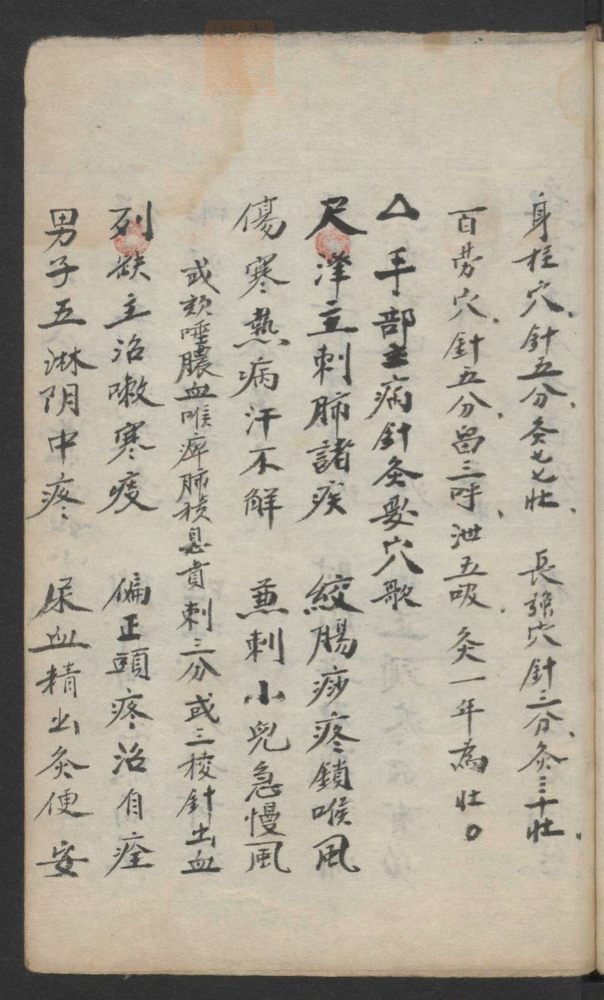 身柱穴、針五分、灸七七壯、長強穴針三分、灸三十壯、
百劳穴、針五分、畄三呼、泄五吸、灸一年為壯〇
△手部主病針灸要穴歌
尺澤主刺肺諸疾 絞腸痧疼鎖喉風
傷寒熱病汗不解 兼刺小児急慢風
或欬唾膿血喉痺肺積息賁刺三分或三棱針出血
列缺主治嗽寒痰 偏正頭疼治自痊
男子五淋阴中疼 尿血精出灸便安